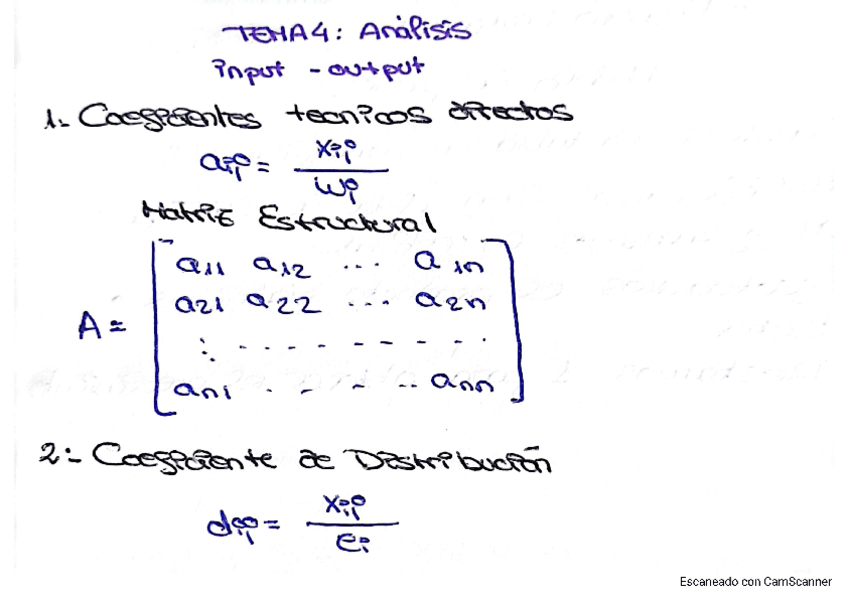 TEMA 4: Análisis
input - output
1.- Coeficientes tecnicos directos
aij = xij / wj
Matriz Estructural
A = [ a11 a12 ... a1n
a21 a22 ... a2n
: . - - - - - - - - .
an1 . - - - .. ann ]
2.- Coeficiente de Distribución
dij = xij / ei
Escaneado con CamScanner